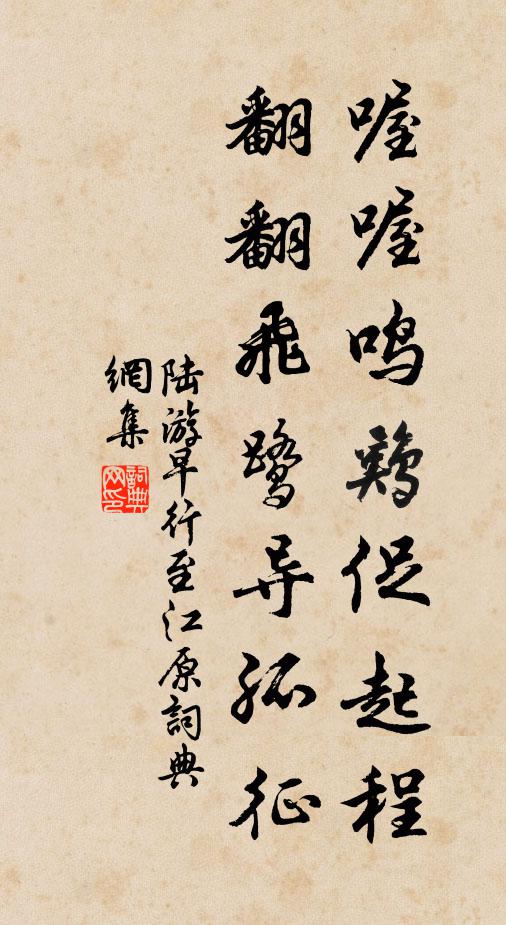 喔喔鸣鸡促起程
翻翻飛鹭导孤征
陆游早行至江原詞典
網集
詞典
网印